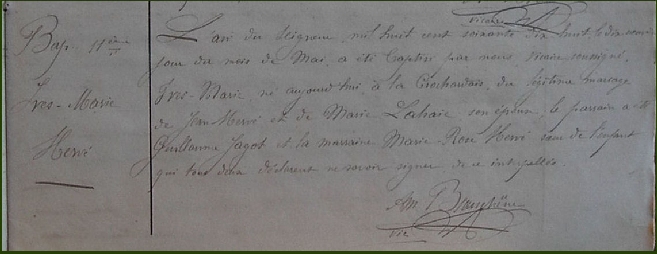 Vicaire
Bap. 11ème
Yves-Marie
Hervé
L'an du Seigneur mil huit cent soixante dix huit, le dix
jour du mois de Mai, a été baptisé par nous Vicaire soussigné,
Yves-Marie, né aujourd'hui à la du légitime mariage
de Jean Hervé et de Marie Lahaie son épouse, le parrain a été
Guillaume Jagot et la marraine Marie-Rose Hervé sœur de l'enfant
qui tous deux déclarent ne savoir signer de ce interpellés.
Am.
Vic